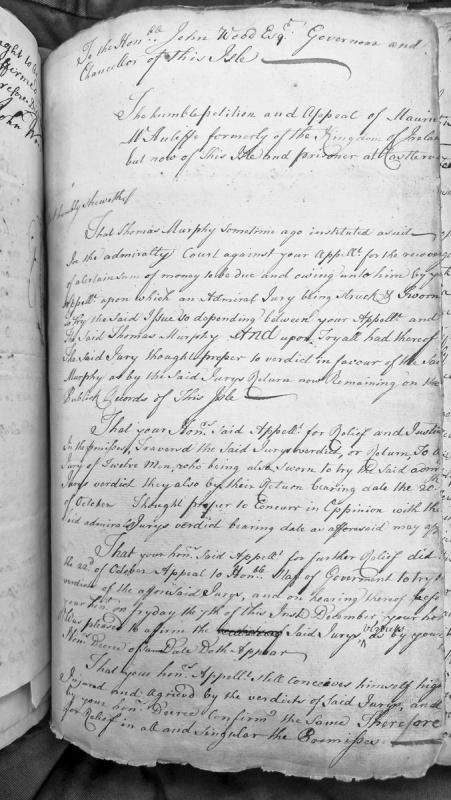 To the Hon:ble John Wood Esq:r Governour and
Chancellor of this Isle
The humble petition and Appeal of Mauric
Mc Auleffe formerly of the Kingdom of Irelan
but now of this Isle and prisoner at Castle
Humbly Sheweth
That Thomas Murphy Sometime ago instituted a suit
in the admiralty Court against your Appell:t for the recov
of a certain sum of money to be due and owing unto him by y:r
Appell:t upon which an Admiral Jury being Struck & Sworn
to try the Said Issue So depending between your Appell:t and
the Said Thomas Murphy And upon Tryall had thereof
the Said Jury thought proper to verdict in favour of the Said
Murphy as by the Said Jurys Return now Remaining on the
Publick Records of this Isle
That your Hon:rs Said Appell:t for Relief and Justice
in the premisses, Traversd the Said Jurys verdict, or Return to a
Jury of Twelve Men, who being also Sworn to try the Said adm:l
Jurys verdict they also by their Return bearing date the 20th
of October Thought proper to Concurr in Oppinion with the
said admiral Jurys verdict bearing date as aforesaid may ap
That your hon:rs Said Appell:t for further Relief did
the 22:d of October Appeal to Hon:ble Staf of Goverment to try t
verdicts of the afforeSaid Jurys, and on hearing thereof before
your hon:r on Fryday the 7th of this Inst December, your hon
Was pleased to affirm the Said Jurys verdicts as by your
Hon:rs Decree of Same Date Doth Appear
That your hon:rs Appell:t Still Conceives himself high
Injured and Agrievd by the verdicts of Said Jurys, and
by your hon:rs Decree Confirm:g the Same Therefore
for Relief in all and Singular the Premisses